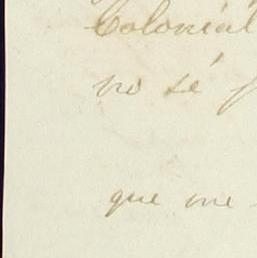 Colonial
no sé
que me